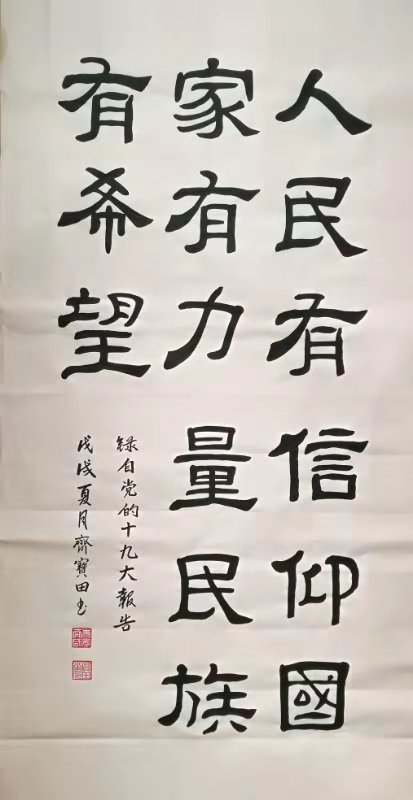 人民有信仰國
家有力量民族
有希望
録自党的十九大報告
戊戌夏月齊寶田书